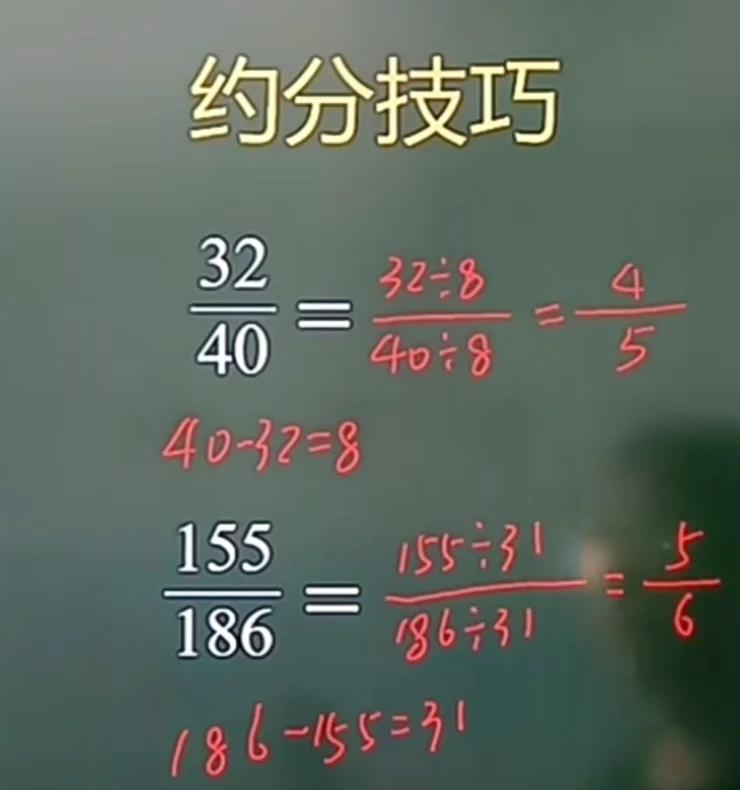 约分技巧
32/40 = 32÷8/40÷8 = 4/5
40-32=8
155/186 = 155÷31/186÷31 = 5/6
186-155=31